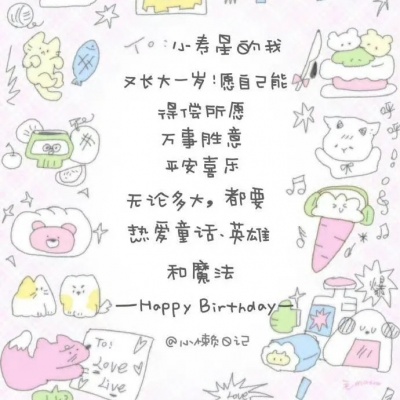 To:小寿星的我
又长大一岁!愿自己能
得偿所愿
万事胜意
平安喜乐
无论多大,都要
热爱童话、英雄
和魔法
—Happy Birthday—
@小懒日记
To:
Love
Live